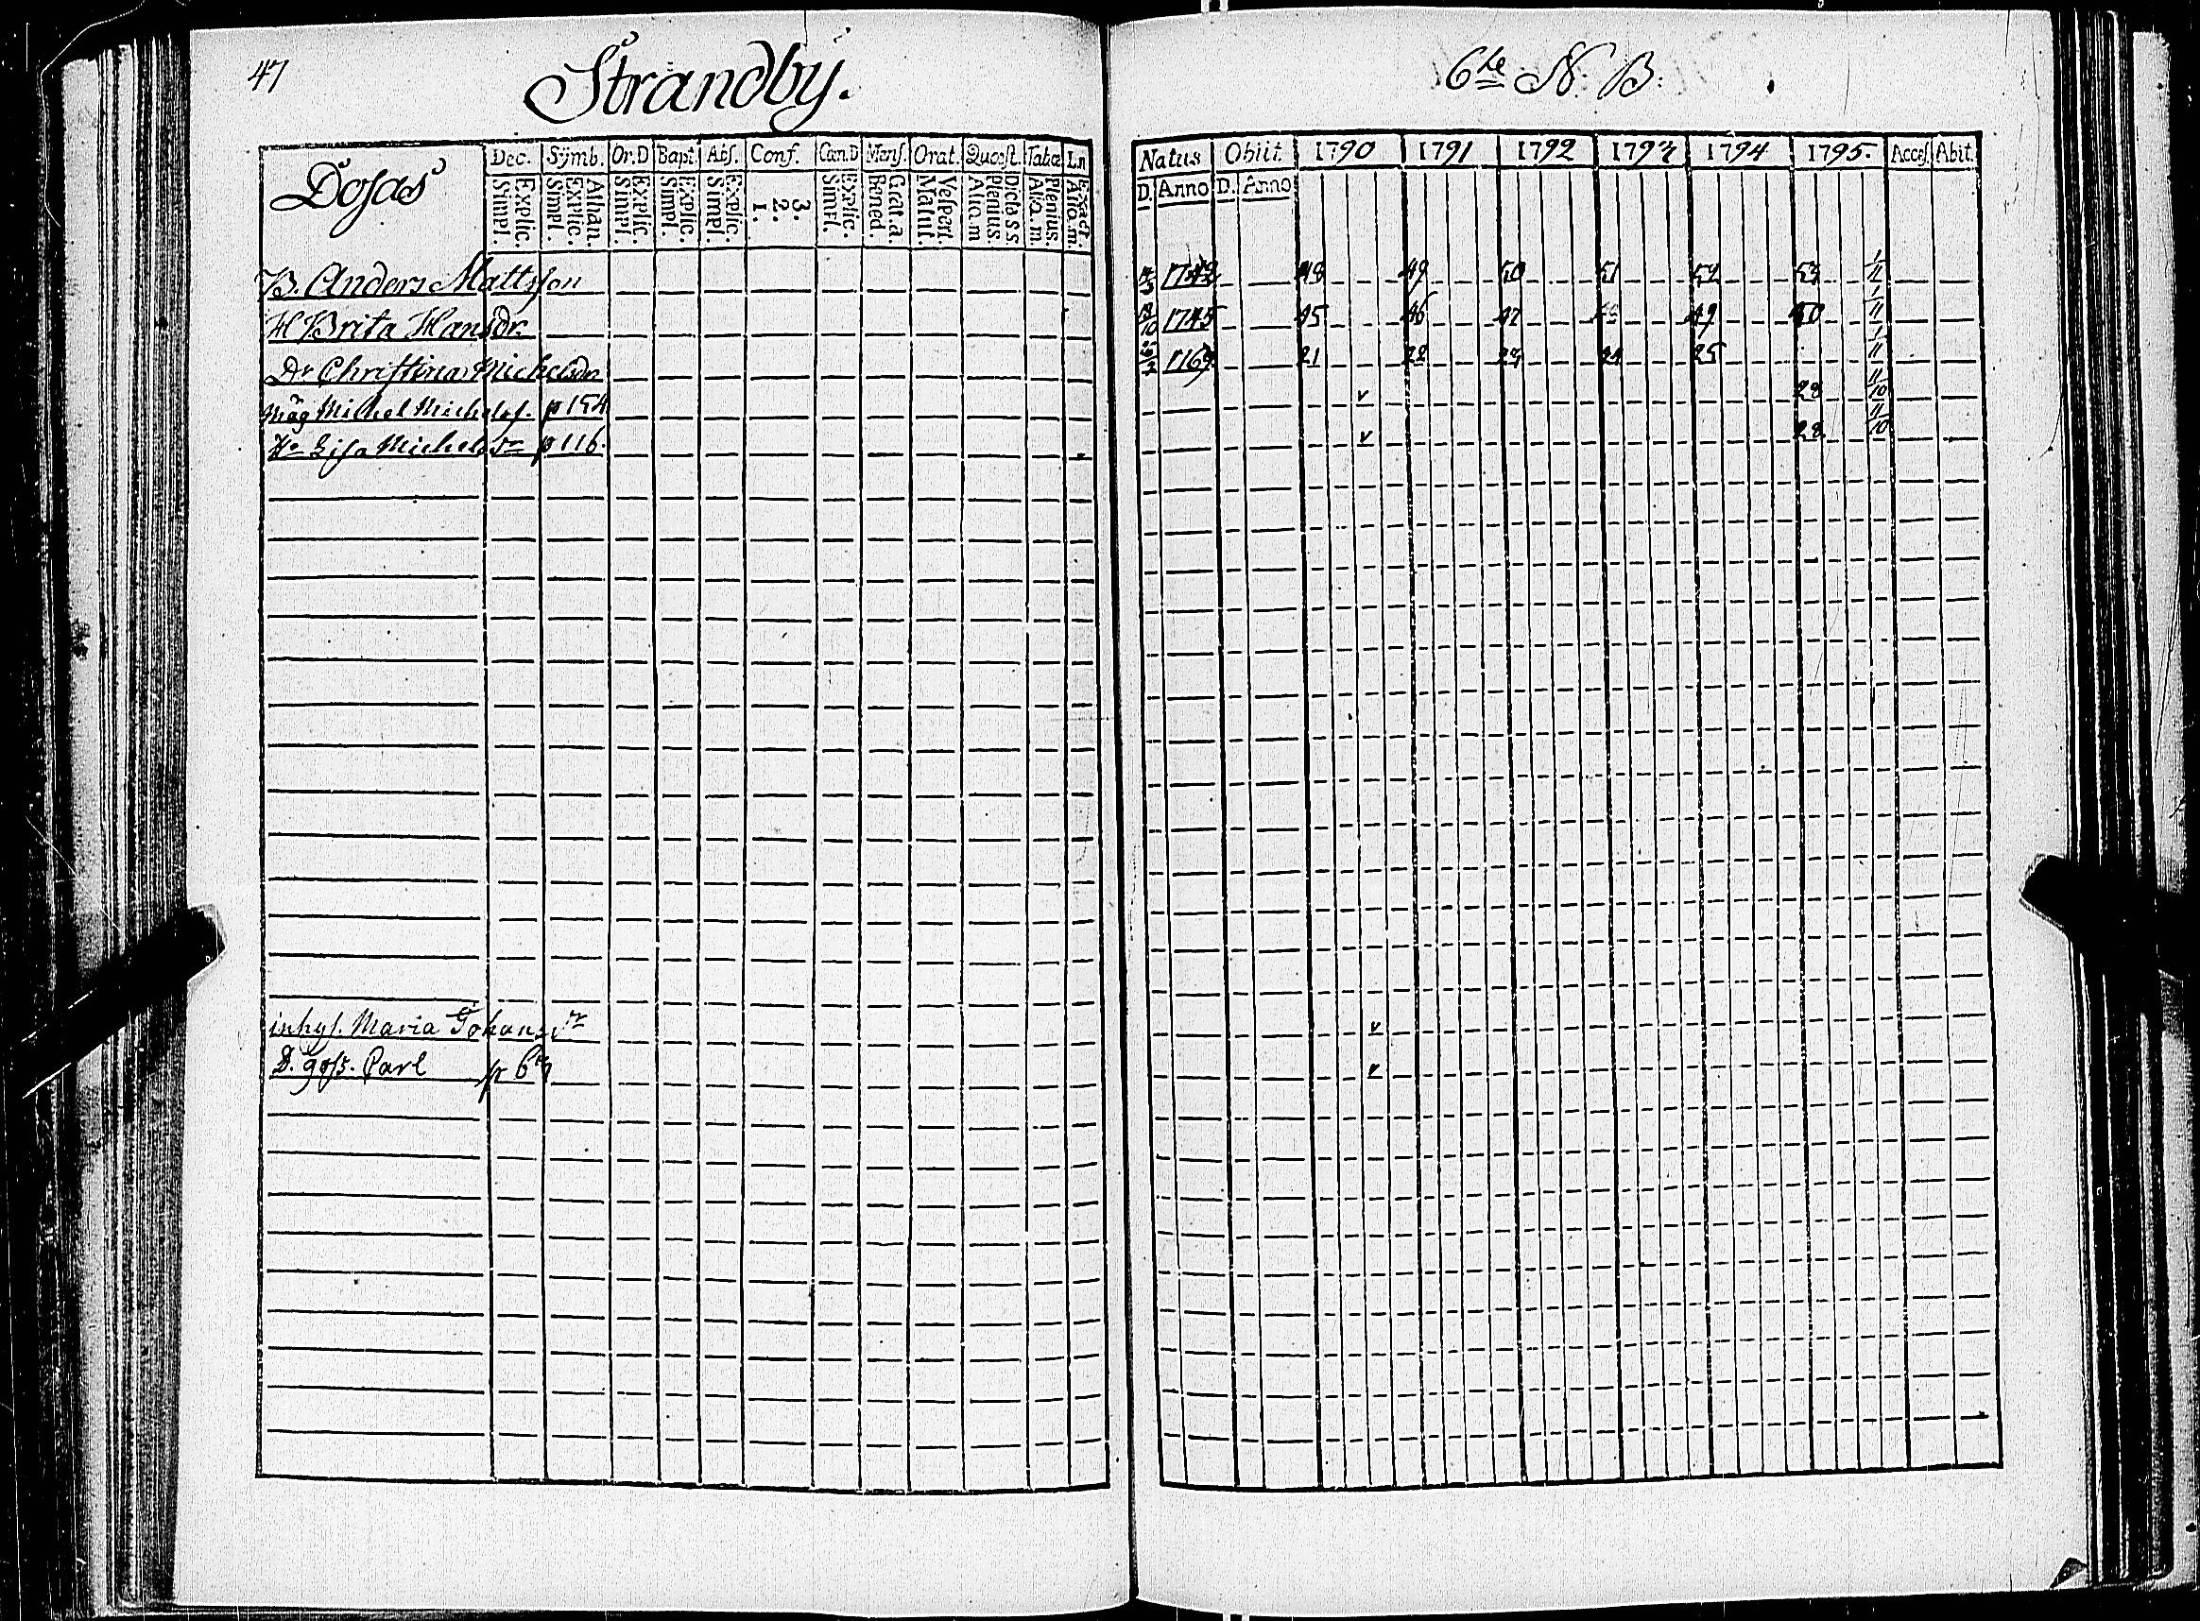 47
Strandby.
6te N. B.
Dosas
Dec. Symb. Or.D Bapt. Abs. Conf. Cœn.D Mens. Orat. Quæst. Tabæ Ln
Simpl. Explic. Simpl. Explic. Athan. Simpl. Explic. Simpl. Explic. Simpl. Explic. 1. 2. 3. Simpl. Explic. Bened. Grat. a. Matut. Vespert. Aliq.m Plenius. Dicta SS Aliq.m. Plenius. Aliq.m. Exact.
Natus Obiit. 1790 1791 1792 1793 1794 1795. Acces. Abit.
D. Anno D. Anno
B. Anders Mattsson 48 49 50 51 52 53 1/11
H Brita Hansdr 1745 45 46 47 49 50 1/11
Dr Christina Michelsdr 1769 21 22 23 24 25 1/11
Måg Michel Michelss. p 154 v 28 11/10
Hu Lisa Michelsdr p 116. v 28 11/10
inhys. Maria Johansdr v
D. goss. Carl v